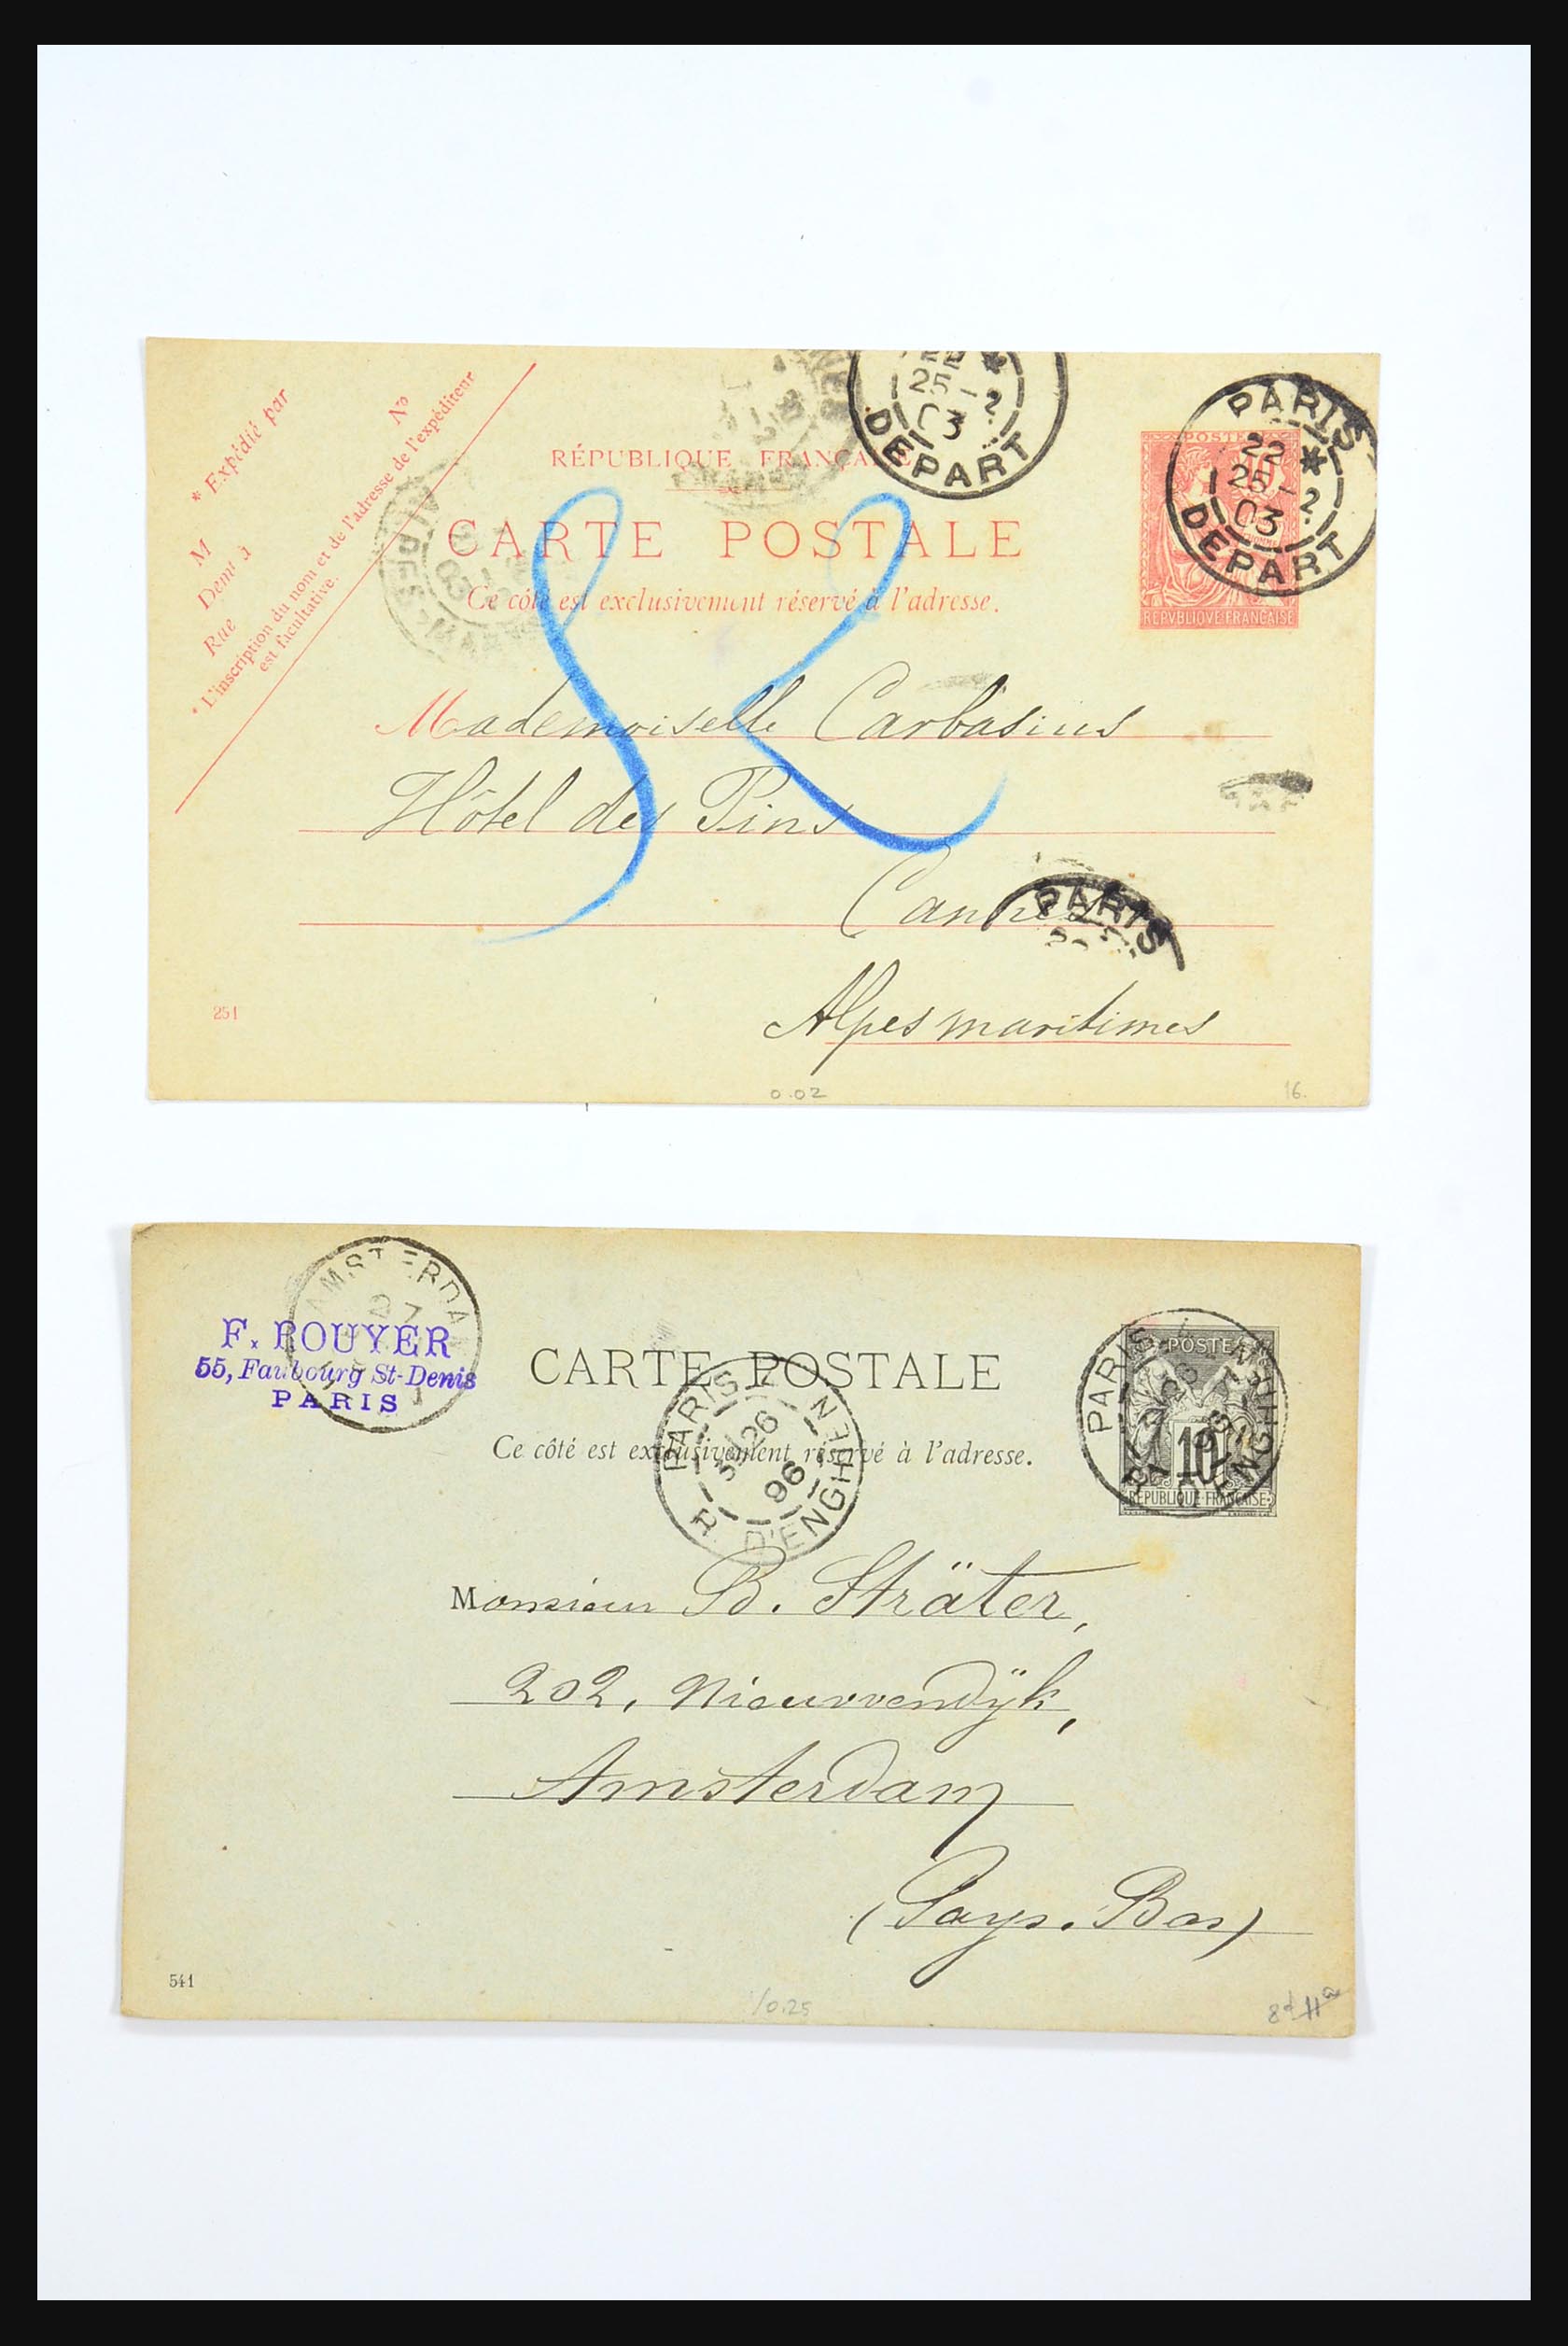 * Expédié par
M
Demt à
Rue
No
* L'inscription du nom et de l'adresse de l'expéditeur
est facultative.
RÉPUBLIQUE FRANÇAISE
CARTE POSTALE
Ce côté est exclusivement réservé à l'adresse.
25 - 2
03
DEPART
POSTES
REPVBLIQVE FRANÇAISE
PARIS
22 *
25 - 2
03
DEPART
52
Mademoiselle Carbasius
Hôtel des Pins
Cannes
PARIS
Alpes maritimes
251
0.02
16.
AMSTERDAM
F. ROUYER
55, Faubourg St-Denis
PARIS
CARTE POSTALE
Ce côté est exclusivement réservé à l'adresse.
PARIS
26
96
D'ENGHIEN
POSTES
10
REPUBLIQUE FRANÇAISE
PARIS
D'ENGHIEN
Monsieur B. Sträter,
202, Nieuwendÿk,
Amsterdam
(Pays-Bas)
541
/0.25